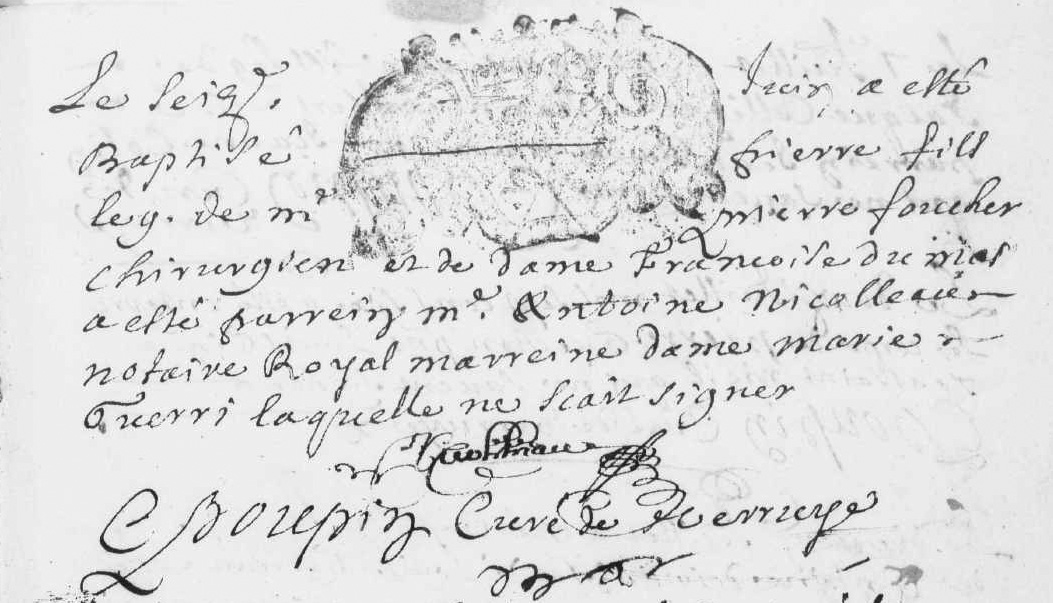 Le seize. Juin a esté
Baptisé pierre fils
leg. de mr pierre foucher
chirurgien et de dame Françoise dumas
a esté parrein mr. Antoine Nicalleau
notaire Royal marreine dame marie
Guerri laquelle ne scait signer
Choupin Curé de Verruye